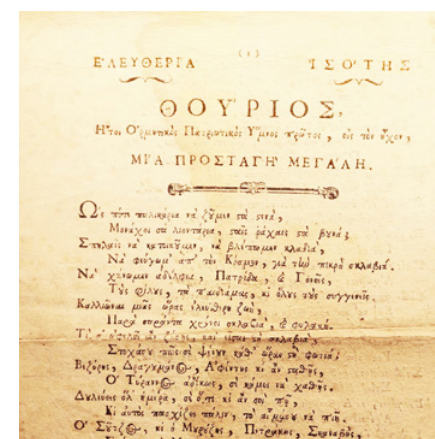 ἘΛΕΥΘΕΡΙΑ (1) ἸΣΟΤΗΣ
ΘΟΥΡΙΟΣ,
Ἤτοι Ὁρμητικὸς Πατριωτικὸς Ὕμνος πρῶτος, εἰς τὸν ἦχον,
ΜΙΑ ΠΡΟΣΤΑΓΗ ΜΕΓΑΛΗ.
Ὡς πότε παλικάρια νὰ ζῦμεν στὰ στενά,
Μονάχοι σὰ λιοντάρια, σταῖς ράχαις στὰ βουνά;
Σπηλιαῖς νὰ κατοικοῦμεν, νὰ βλέπωμεν κλαδιά,
Νὰ φεύγωμ' ἀπ' τὸν Κόσμον, γιὰ τὴν πικρὴ σκλαβιά.
Νὰ χάνωμεν ἀδέλφια, Πατρίδα, & Γονεῖς,
Τοὺς φίλους, τὰ παιδιά μας, κι ὅλους τοὺς συγγενεῖς.
Καλλιῶναι μιᾶς ὥρας ἐλεύθερη ζωή,
Παρὰ σαράντα χρόνοι σκλαβιά, & φυλακή.
Τί σ' ὠφελεῖ ἂν ζήσῃς, καὶ εἶσαι στὴ σκλαβιά,
Στοχάσου πῶς σὲ ψένουν καθ' ὥραν στὴ φωτιά;
Βεζύρης, Δραγουμάνος, Ἀφέντης κι ἂν σταθῇς,
Ὁ Τύραννος ἀδίκως, σὲ κάμει νὰ χαθῇς.
Δουλεύεις ὅλ' ἡμέρα, σὲ ὅ,τι κι ἂν σοὶ πῇ,
Κι αὐτὸς πασχίζει πάλιν, τὸ αἷμά σου νὰ πιῇ.
Ὁ Σοῦτζος, κι ὁ Μουρούζης, Πετράκης, Σκαναβῆς,